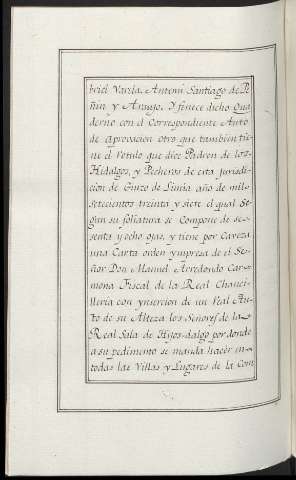 briel Varela. Antemi Santiago de Pe
ñin y Araujo. Y fenece dicho Qua
derno con el Correspondiente Auto
de aprovacion otro que tambien tie
ne el Rotulo que dice Padron de los
Hidalgos, y Pecheros de esta jurisdi
cion de Ginzo de Limia año de mil
setecientos treinta y siete el qual Se
gun su foliatura se Compone de se
senta y ocho ojas, y tiene por Caveza
una Carta orden ympresa de el Se
ñor Don Manuel Arredondo Car
mona Fiscal de la Real Chanci
lleria con ynsercion de un Real Au
to de su Alteza los Señores de la
Real Sala de Hijos-dalgo por donde
a su pedimento se manda hacer en
todas las Villas y Lugares de la Com